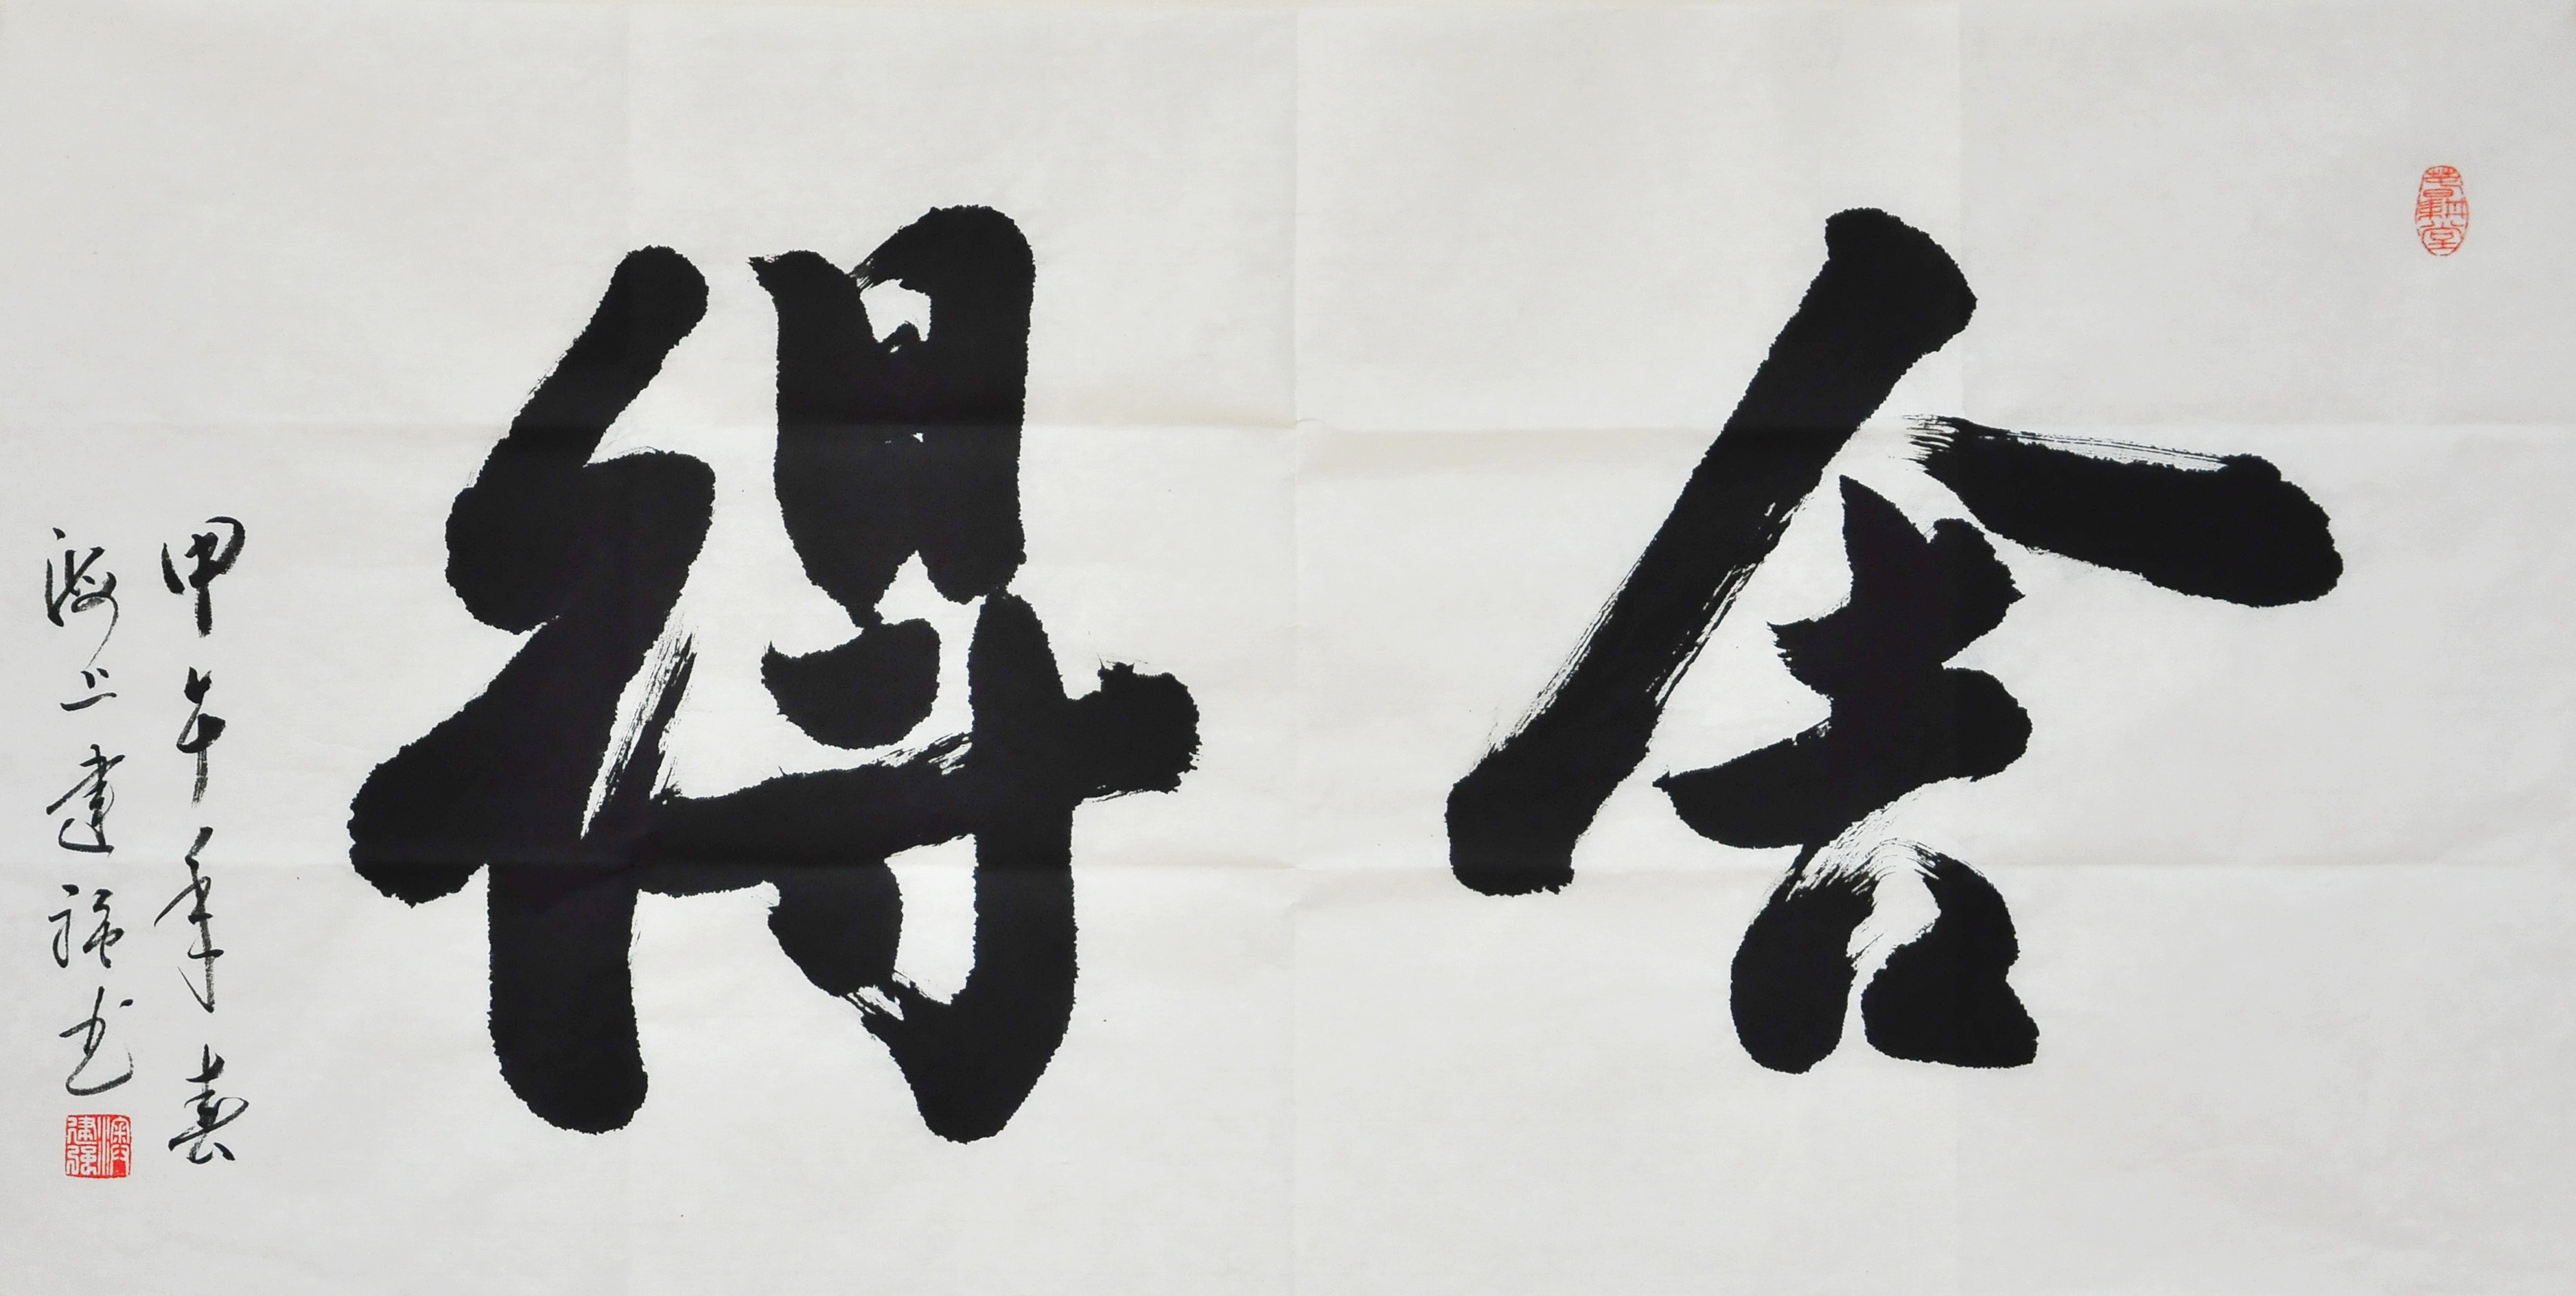 舍得
甲午年春
海上建强书